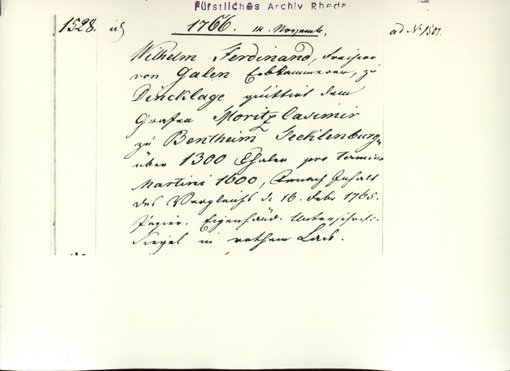 Fürstliches Archiv Rheda
1528.
1766. 14. Novemb.
ad N. 1507.
Wilhelm Ferdinand, Freiherr
von Galen Erbkämmerer, zu
Dincklage quittirt dem
Grafen Moritz Casimir
zu Bentheim Tecklenburg
über 1300 Thaler pro termino
Martini 1600, Inhalt
des Vergleichs de 16. Febr. 1765.
Papier. Eigenhänd. Unterschrift.
Siegel in rothem Lack.